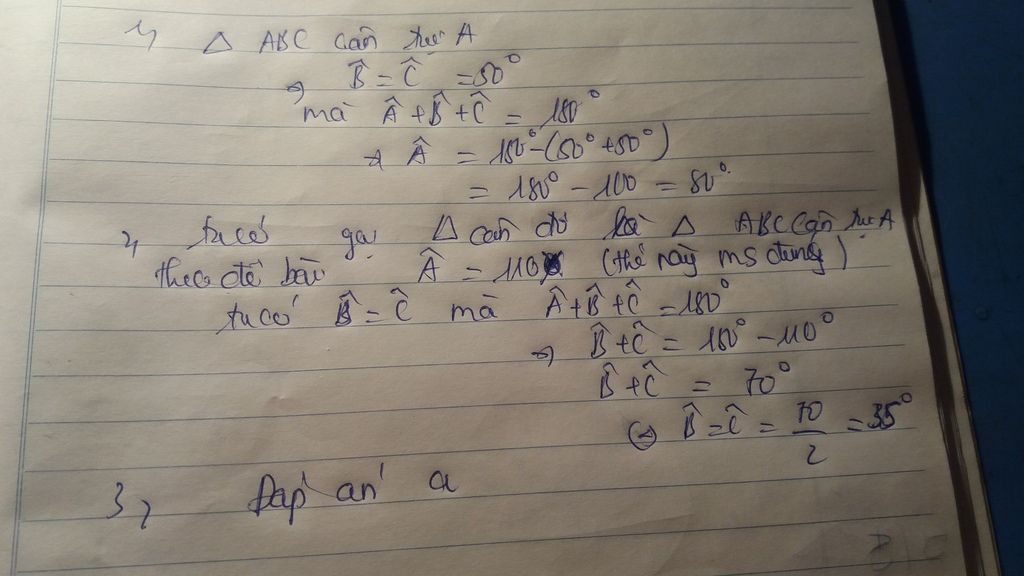 1, △ ABC cân tại A
=> B̂ = Ĉ = 50°
mà Â + B̂ + Ĉ = 180°
=> Â = 180° - (50° + 50°)
= 180° - 100 = 80°
2, ta có gọi △ cân đó là △ ABC cân tại A
theo đề bài Â = 110 (thế này ms đúng)
ta có B̂ = Ĉ mà Â + B̂ + Ĉ = 180°
=> B̂ + Ĉ = 180° - 110°
B̂ + Ĉ = 70°
B̂ = Ĉ = 70/2 = 35°
3, Đáp án a